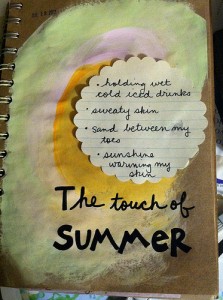 • holding wet
cold iced drinks
• sweaty skin
• sand between my
toes
• sunshine
warming my
skin
The touch of
SUMMER